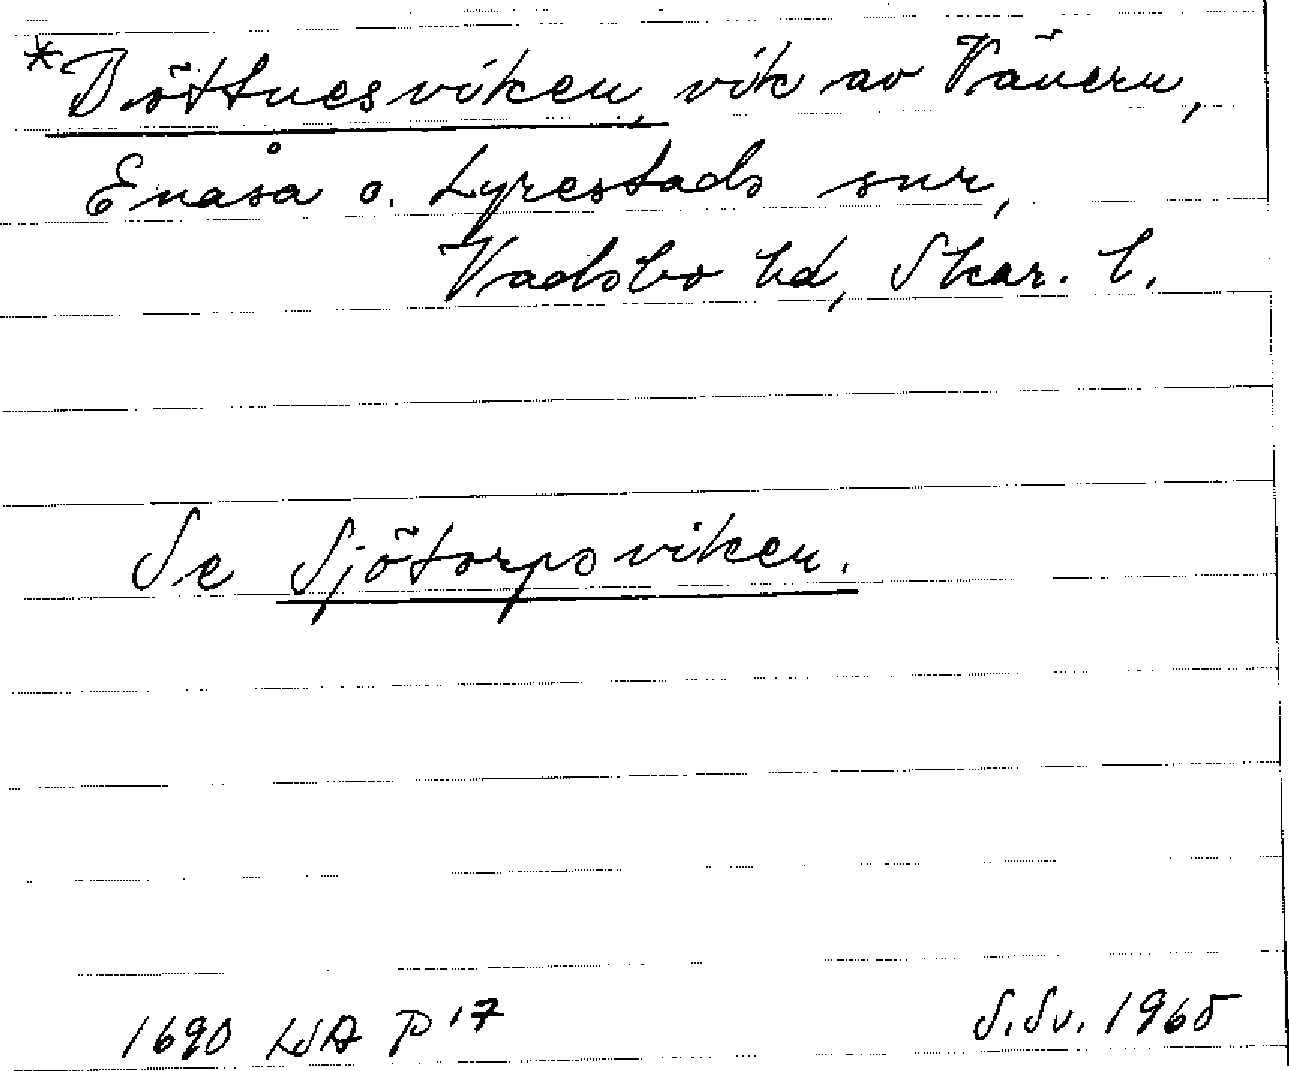 *Böttnesviken, vik av Vänern,
Enåsa o. Lyrestads snr,
Vadsbo hd, Skar. l.
Se Sjötorpsviken.
1690 LSA P 17
S.Sv. 1965